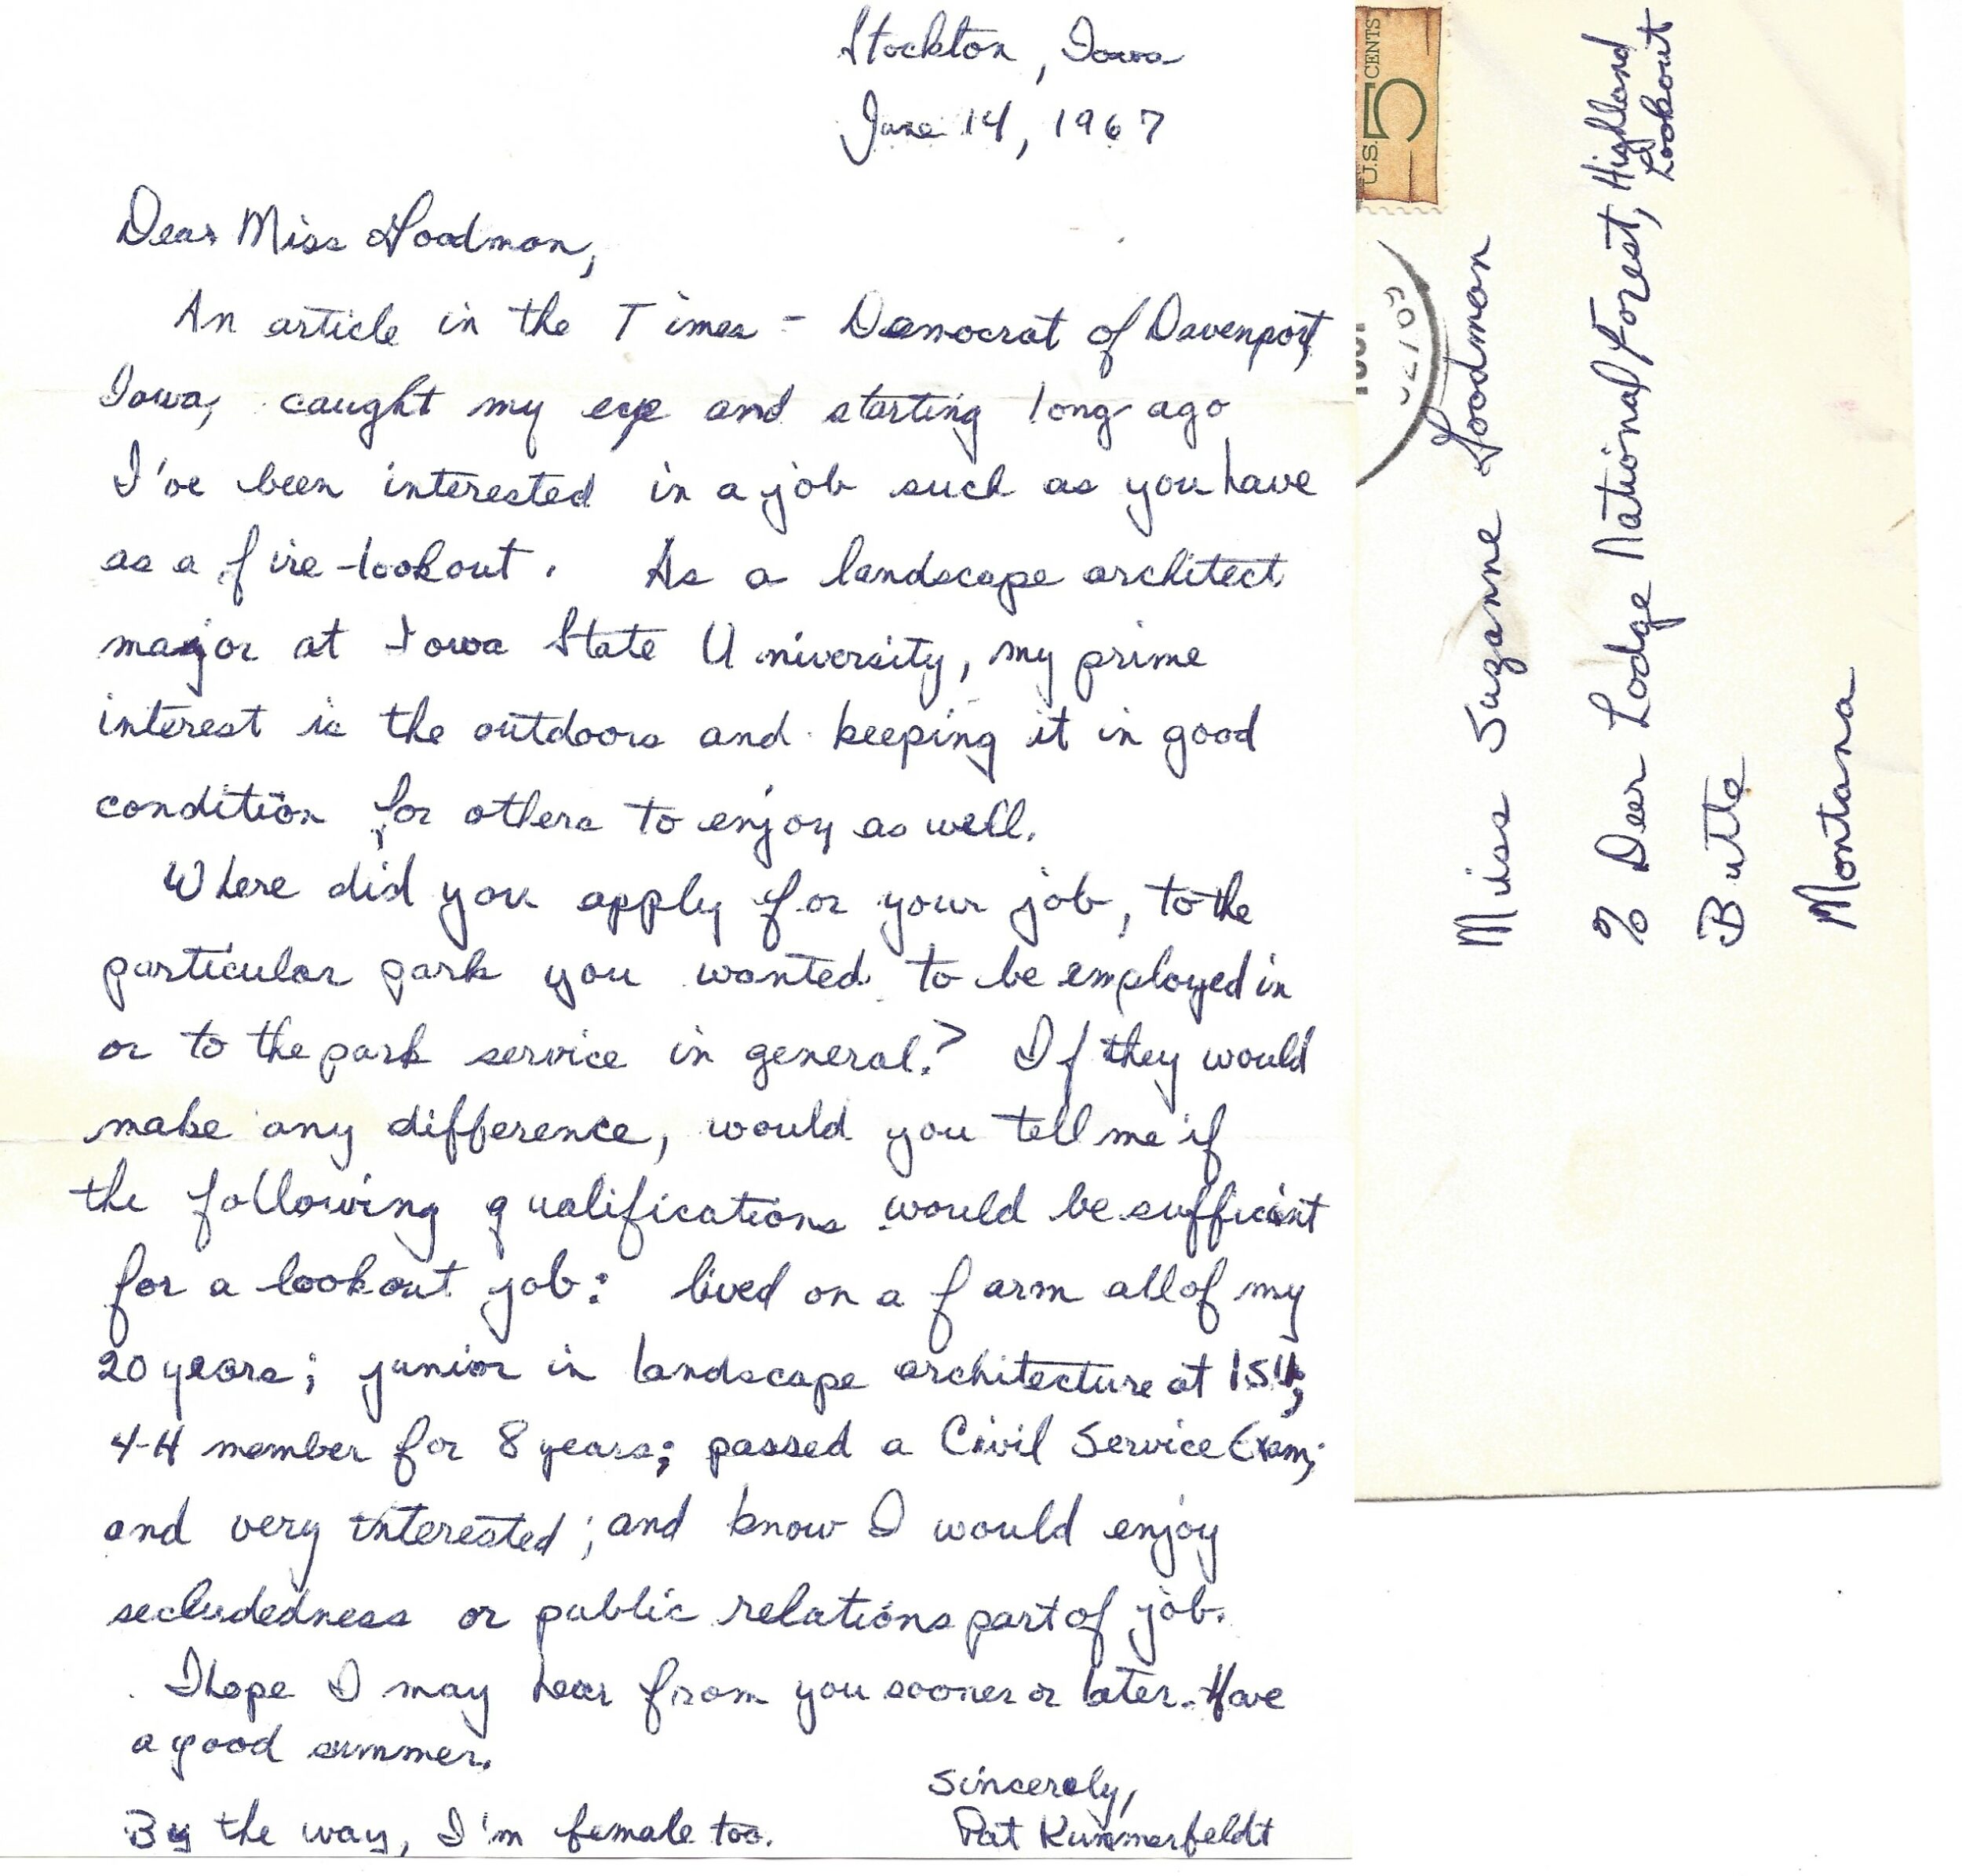 Stockton, Iowa
June 14, 1967
Dear Miss Goodman,
An article in the Times - Democrat of Davenport,
Iowa, caught my eye and starting long ago
I've been interested in a job such as you have
as a fire-lookout. As a landscape architect
major at Iowa State University, my prime
interest is the outdoors and keeping it in good
condition for others to enjoy as well.
Where did you apply for your job, to the
particular park you wanted to be employed in
or to the park service in general? If they would
make any difference, would you tell me if
the following qualifications would be sufficient
for a lookout job: lived on a farm all of my
20 years; junior in landscape architecture at ISU;
4-H member for 8 years; passed a Civil Service Exam;
and very interested; and know I would enjoy
secludedness or public relations part of job.
I hope I may hear from you sooner or later. Have
a good summer.
Sincerely,
By the way, I'm female too.
Pat Kummerfeldt
U.S. 5 CENTS
Miss Suzanne Goodman
% Deer Lodge National Forest, Highland
Lookout
Butte
Montana